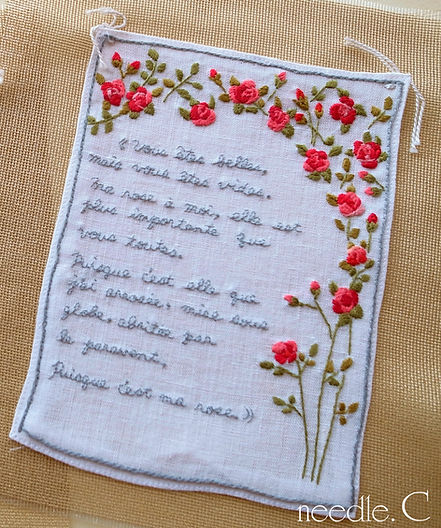 « Vous êtes belles,
mais vous êtes vides.
Ma rose à moi, elle est
plus importante que
vous toutes.
Puisque c'est elle que
j'ai arrosée, mise sous
globe, abritée par
le paravent,
Puisque c'est ma rose. »
needle. C